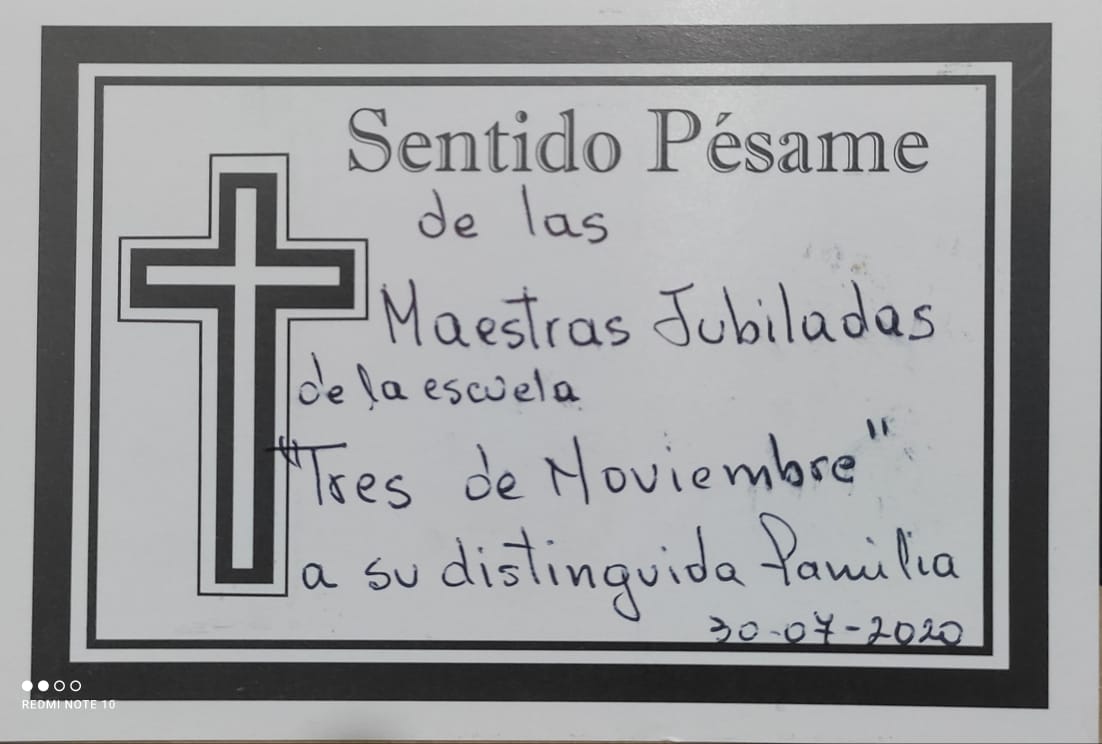 Sentido Pésame
de las
Maestras Jubiladas
de la escuela
"Tres de Noviembre"
a su distinguida familia
30-07-2020
REDMI NOTE 10